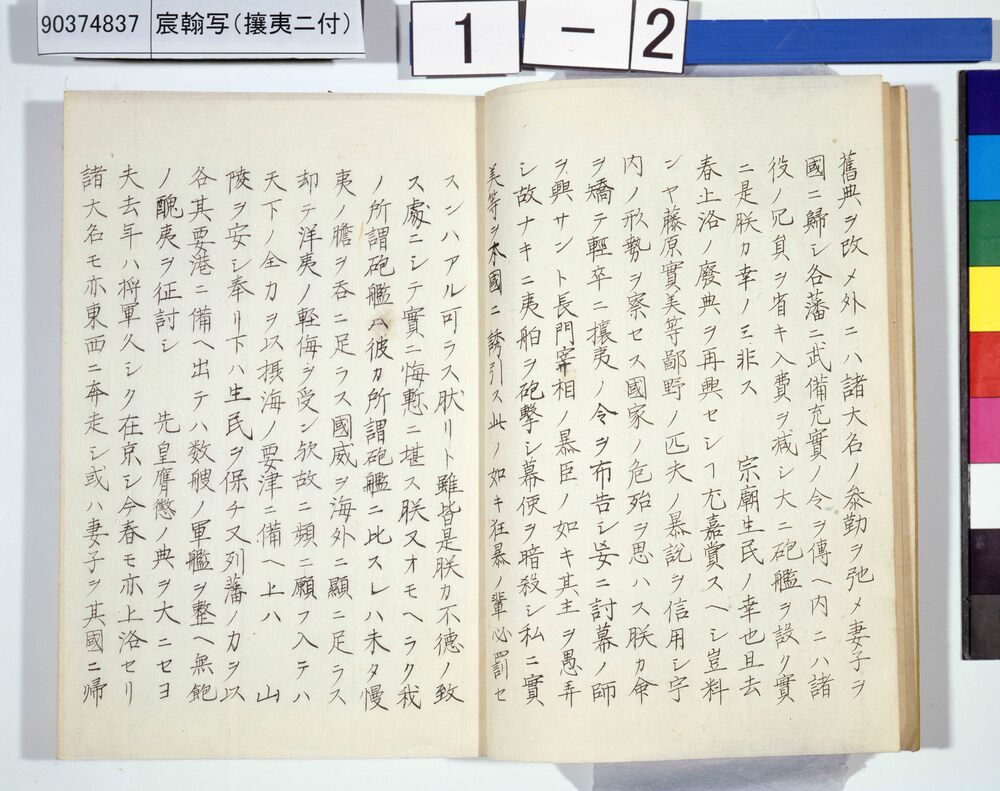 90374837 宸翰写(攘夷ニ付)
1-2
舊典ヲ改メ外ニハ諸大名ノ叅勤ヲ弛メ妻子ヲ
國ニ歸シ各藩ニ武備充實ノ令ヲ傳ヘ内ニハ諸
役ノ冗負ヲ省キ入費ヲ减シ大ニ砲艦ヲ設ク實
ニ是朕カ幸ノミ非ス 宗廟生民ノ幸也且去
春上洛ノ廢典ヲ再興セシヿ尤嘉賞スヘシ豈料
ンヤ藤原實美等鄙野ノ匹夫ノ暴説ヲ信用シ宇
内ノ形勢ヲ察セス國家ノ危殆ヲ思ハス朕カ命
ヲ矯テ輕卒ニ攘夷ノ令ヲ布告シ妄ニ討幕ノ師
ヲ興サント長門宰相ノ暴臣ノ如キ其主ヲ愚弄
シ故ナキニ夷舶ヲ砲撃シ幕使ヲ暗殺シ私ニ實
美等ヲ本國ニ誘引ス此ノ如キ狂暴ノ輩必罰セ
スンハアル可ラス肰リト雖皆是朕カ不德ノ致
ス處ニシテ實ニ悔慙ニ堪ス朕又オモヘラク我
ノ所謂砲艦ハ彼カ所謂砲艦ニ比スレハ未タ慢
夷ノ膽ヲ呑ニ足ラス國威ヲ海外ニ顯ニ足ラス
却テ洋夷ノ軽侮ヲ受ン欤故ニ頻ニ願フ入テハ
天下ノ全力ヲ以摂海ノ要津ニ備ヘ上ハ 山
陵ヲ安シ奉リ下ハ生民ヲ保チ又列藩ノ力ヲ以
各其要港ニ備ヘ出テハ数艘ノ軍艦ヲ整ヘ無飽
ノ醜夷ヲ征討シ 先皇膺懲ノ典ヲ大ニセヨ
夫去年ハ将軍久シク在京シ今春モ亦上洛セリ
諸大名モ亦東西ニ奔走シ或ハ妻子ヲ其國ニ帰